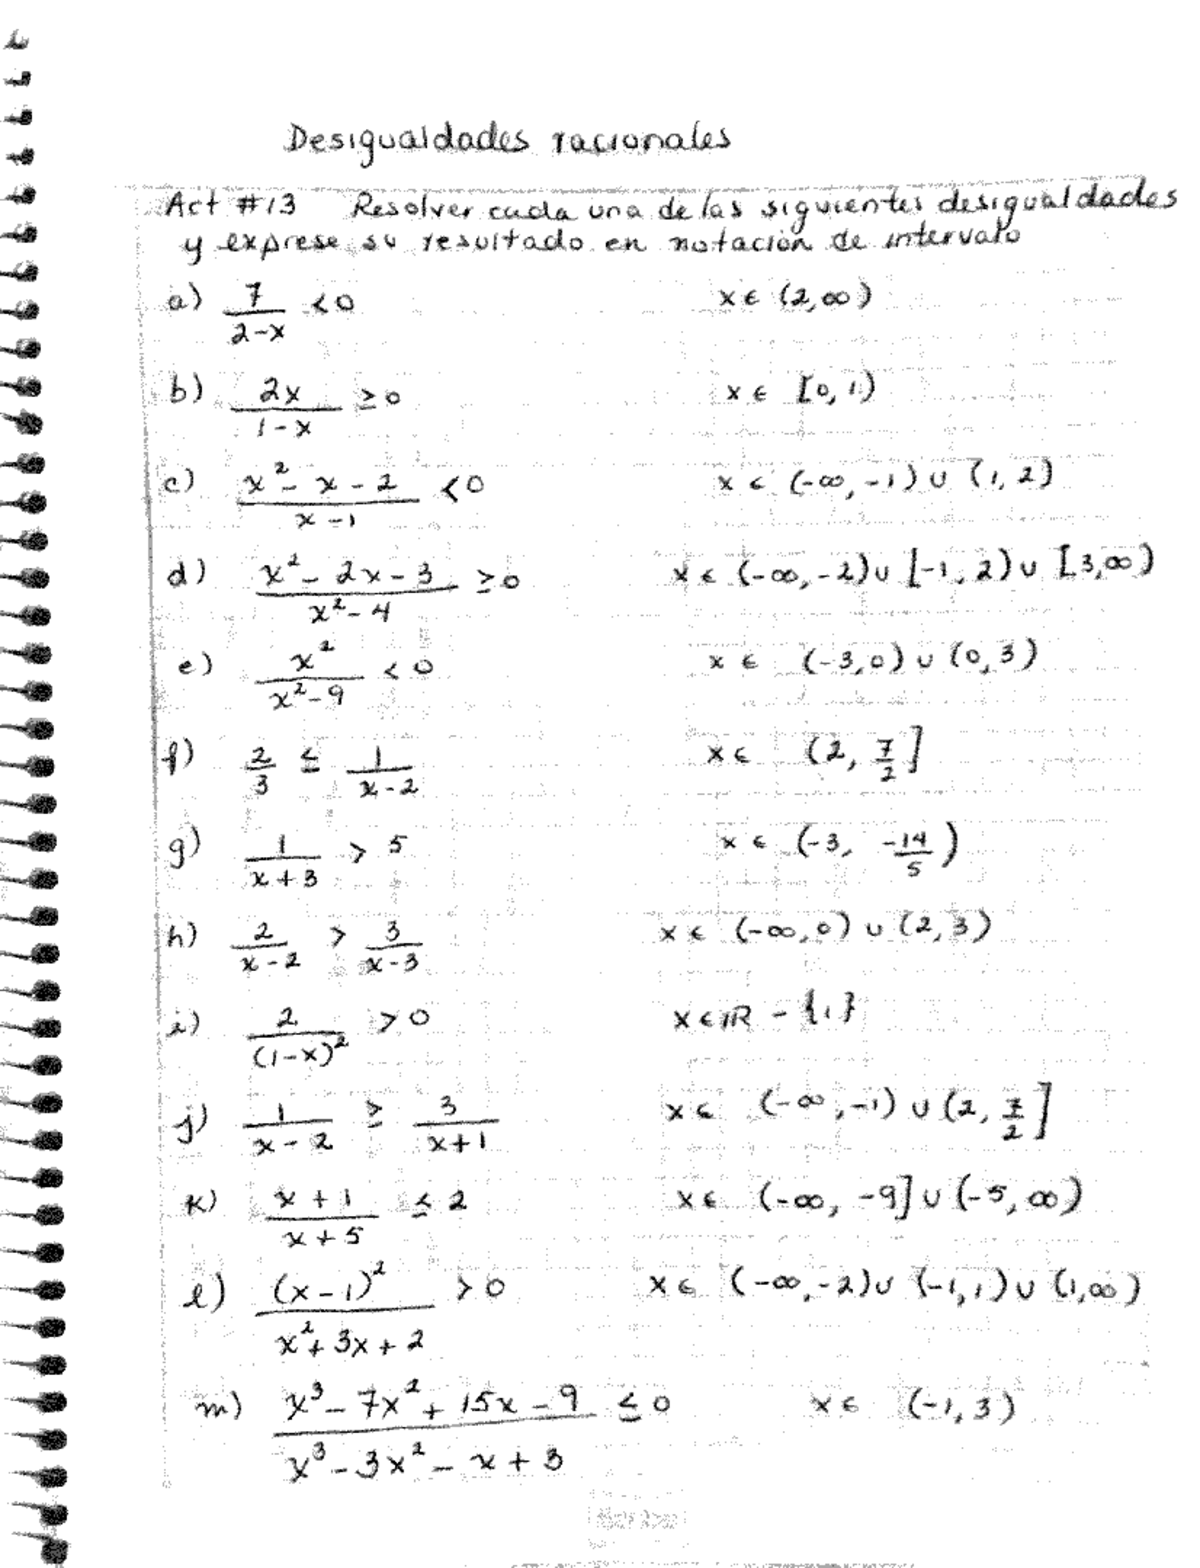 Desigualdades racionales
Act #13 Resolver cada una de las siguientes desigualdades
y exprese su resultado en notación de intervalo
a) 7/(2-x) < 0 x ∈ (2, ∞)
b) 2x/(1-x) ≥ 0 x ∈ [0, 1)
c) (x² - x - 2)/(x - 1) < 0 x ∈ (-∞, -1) ∪ (1, 2)
d) (x² - 2x - 3)/(x² - 4) ≥ 0 x ∈ (-∞, -2) ∪ [-1, 2) ∪ [3, ∞)
e) x²/(x² - 9) < 0 x ∈ (-3, 0) ∪ (0, 3)
f) 2/3 ≤ 1/(x - 2) x ∈ (2, 7/2]
g) 1/(x + 3) > 5 x ∈ (-3, -14/5)
h) 2/(x - 2) > 3/(x - 3) x ∈ (-∞, 0) ∪ (2, 3)
i) 2/(1-x)² > 0 x ∈ ℝ - {1}
j) 1/(x - 2) ≥ 3/(x + 1) x ∈ (-∞, -1) ∪ (2, 7/2]
k) (x + 1)/(x + 5) ≤ 2 x ∈ (-∞, -9] ∪ (-5, ∞)
l) (x - 1)²/(x² + 3x + 2) > 0 x ∈ (-∞, -2) ∪ (-1, 1) ∪ (1, ∞)
m) (x³ - 7x² + 15x - 9)/(x³ - 3x² - x + 3) ≤ 0 x ∈ (-1, 3)